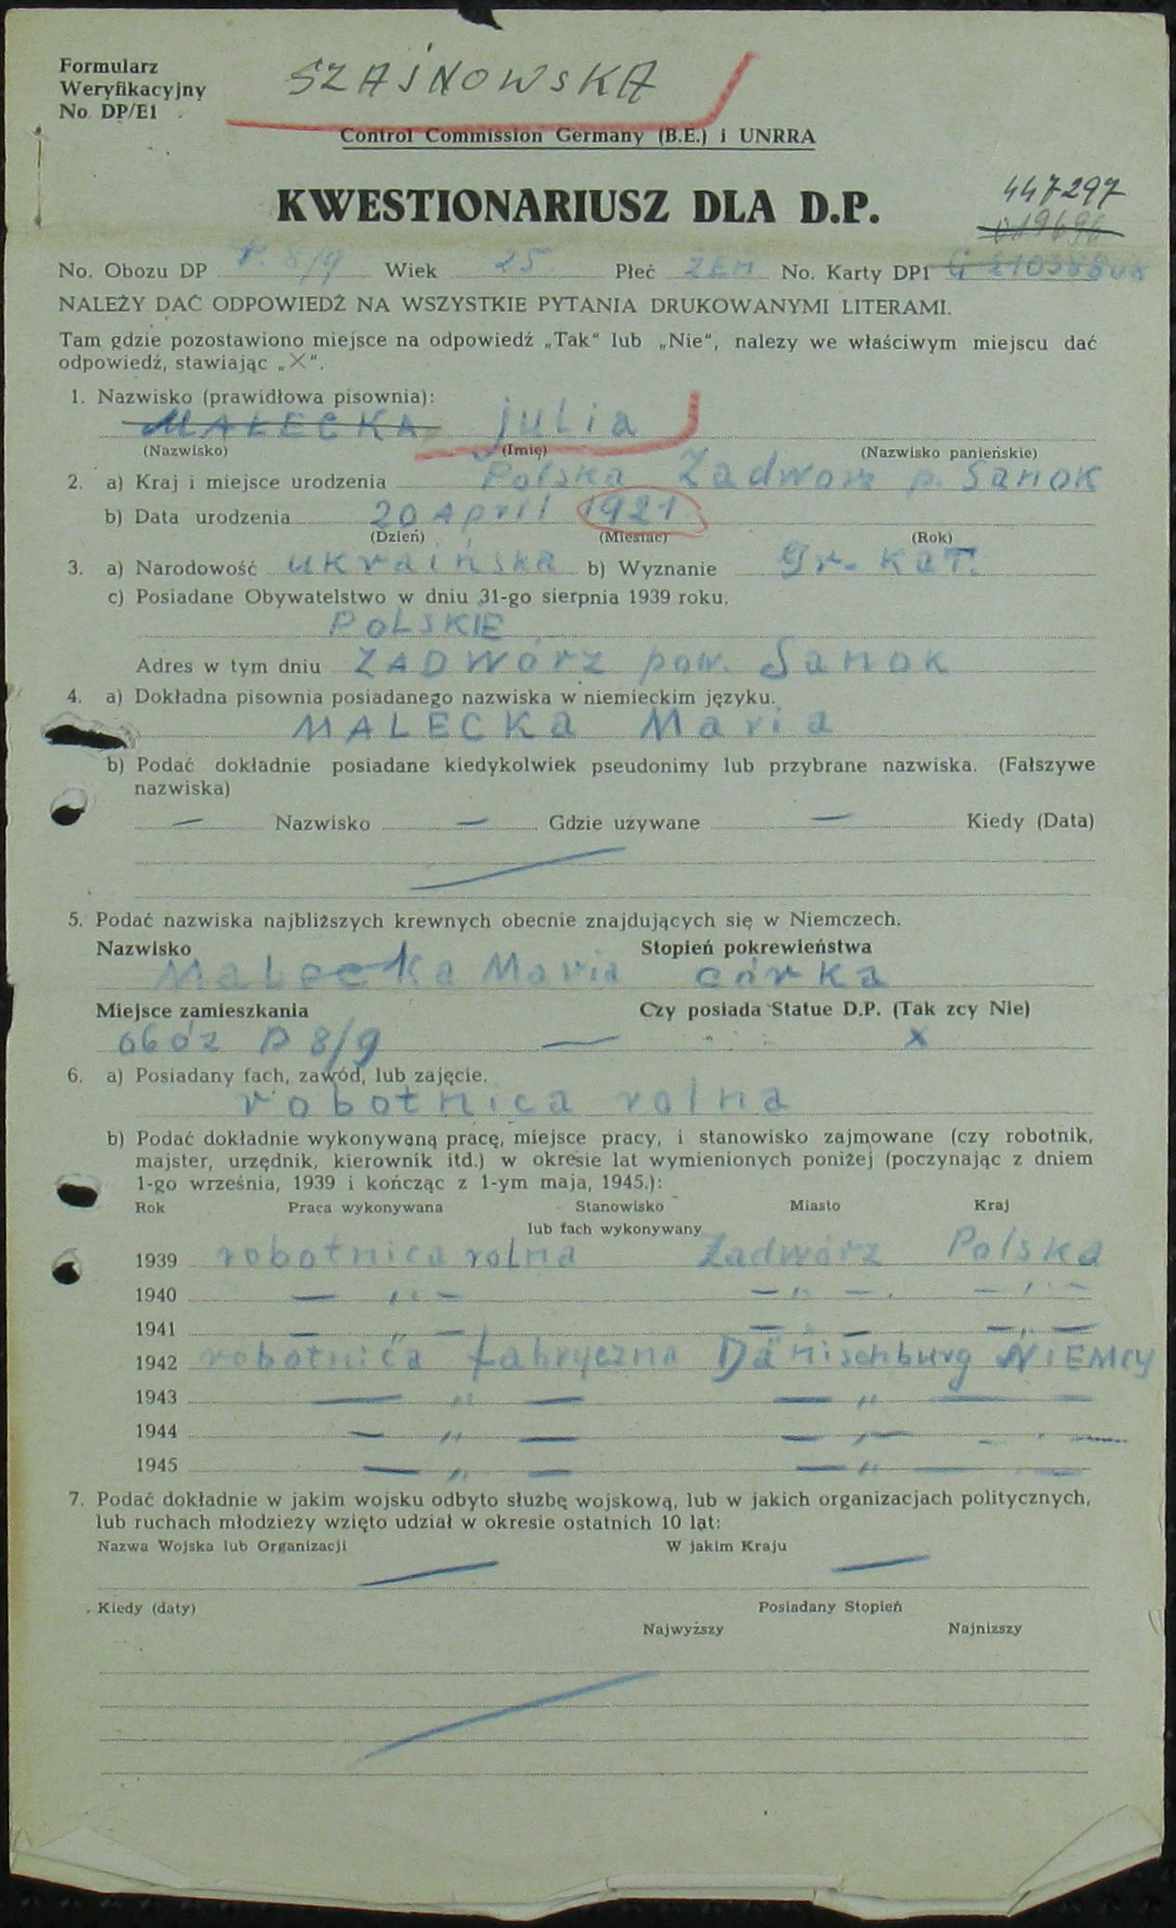 Formularz
Weryfikacyjny
No DP/E1
SZAJNOWSKA
Control Commission Germany (B.E.) i UNRRA
KWESTIONARIUSZ DLA D.P.
447297
019696
No. Obozu DP P. 8/9 Wiek 25 Płeć ŻEN No. Karty DP1
NALEŻY DAĆ ODPOWIEDŹ NA WSZYSTKIE PYTANIA DRUKOWANYMI LITERAMI.
Tam gdzie pozostawiono miejsce na odpowiedź „Tak" lub „Nie", nalezy we właściwym miejscu dać
odpowiedź, stawiając „X".
1. Nazwisko (prawidłowa pisownia):
MAŁECKA julia
(Nazwisko) (Imię) (Nazwisko panieńskie)
2. a) Kraj i miejsce urodzenia Polska Zadwórz p. Sanok
b) Data urodzenia 20 April 1921
(Dzień) (Miesiac) (Rok)
3. a) Narodowość ukraińska b) Wyznanie gr. kat.
c) Posiadane Obywatelstwo w dniu 31-go sierpnia 1939 roku.
POLSKIE
Adres w tym dniu ZADWórz pow. Sanok
4. a) Dokładna pisownia posiadanego nazwiska w niemieckim języku.
MALECKa Maria
b) Podać dokładnie posiadane kiedykolwiek pseudonimy lub przybrane nazwiska. (Fałszywe
nazwiska)
— Nazwisko — Gdzie używane — Kiedy (Data)
5. Podać nazwiska najbliższych krewnych obecnie znajdujących się w Niemczech.
Nazwisko Stopień pokrewieństwa
Malecka Maria córka
Miejsce zamieszkania Czy posiada Statue D.P. (Tak zcy Nie)
obóz P 8/9 — x
6. a) Posiadany fach, zawód, lub zajęcie.
robotnica rolna
b) Podać dokładnie wykonywaną pracę, miejsce pracy, i stanowisko zajmowane (czy robotnik,
majster, urzędnik, kierownik itd.) w okresie lat wymienionych poniżej (poczynając z dniem
1-go września, 1939 i kończąc z 1-ym maja, 1945.):
Rok Praca wykonywana Stanowisko Miasto Kraj
lub fach wykonywany
1939 robotnica rolna Zadwórz Polska
1940 — „ — — „ — — „ —
1941 — „ — — „ — — „ —
1942 robotnica fabryczna Dänischburg NiEMcy
1943 — „ — — „ — —
1944 — „ — — „ — — „ —
1945 — „ — — „ — —
7. Podać dokładnie w jakim wojsku odbyto służbę wojskową, lub w jakich organizacjach politycznych,
lub ruchach młodzieży wzięto udział w okresie ostatnich 10 lat:
Nazwa Wojska lub Organizacji W jakim Kraju
— —
Kiedy (daty) Posiadany Stopień
Najwyższy Najnizszy